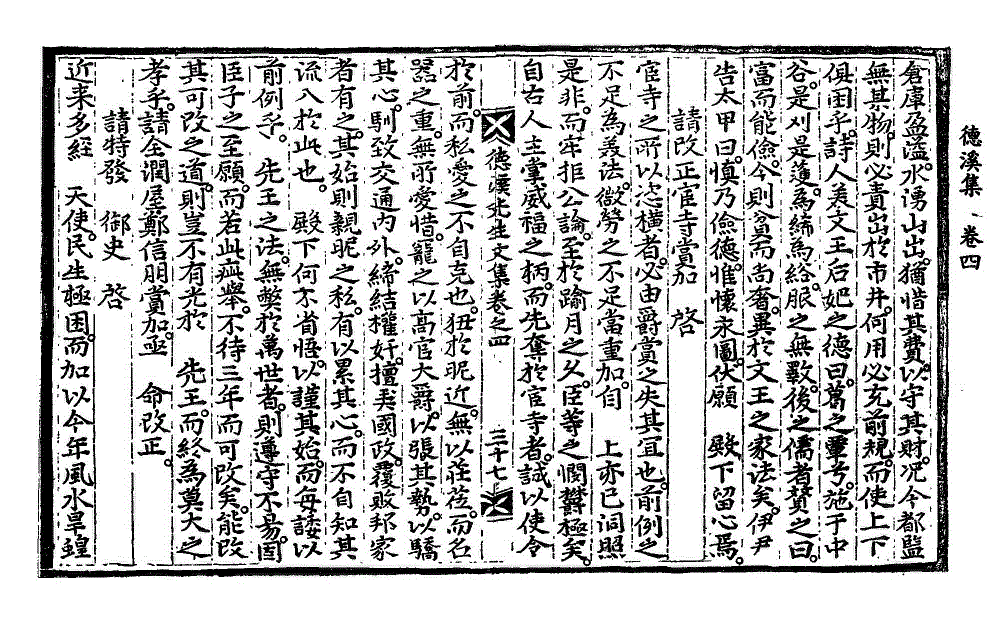 德溪集 卷四
倉庫盈溢。水湧山出。猶惜其費。以守其財。况今都監
無其物。則必責出於市井。何用必充前規。而使上下
俱困乎。詩人美文王后妃之德曰。葛之覃兮。施于中
谷。是刈是濩。為絺為綌。服之無斁。後之儒者贊之曰。
富而能儉。今則貧而尚奢。異於文王之家法矣。伊尹
告太甲曰。愼乃儉德。惟懷永圖。伏願 殿下留心焉。
請改正宦寺賞加 啓
宦寺之所以恣橫者。必由爵賞之失其宜也。前例之
不足為義法。微勞之不足當重加。自 上亦已洞照
是非。而牢拒公論。至於踰月之久。臣等之憫欝極矣。
自古人主掌威福之柄。而先奪於宦寺者。誠以使令
德溪先生文集卷之四 三十七
於前。而私愛之不自克也。狃於昵近。無以莊莅。而名
器之重。無所愛惜。寵之以高官大爵。以張其勢。以驕
其心。馴致交通內外。締結權奸。擅弄國政。覆敗邦家
者有之。其始則親昵之私。有以累其心。而不自知其
流入於此也。 殿下何不省悟。以謹其始。而每諉以
前例乎。 先王之法。無弊於萬世者。則遵守不易。固
臣子之至願。而若此疵舉。不待三年而可改矣。能改
其可改之道。則豈不有光於 先王。而終為莫大之
孝乎。請全潤屋鄭信朋賞加。亟 命改正。
請特發 御史 啓
近来多經 天使。民生極困。而加以今年風水旱蝗